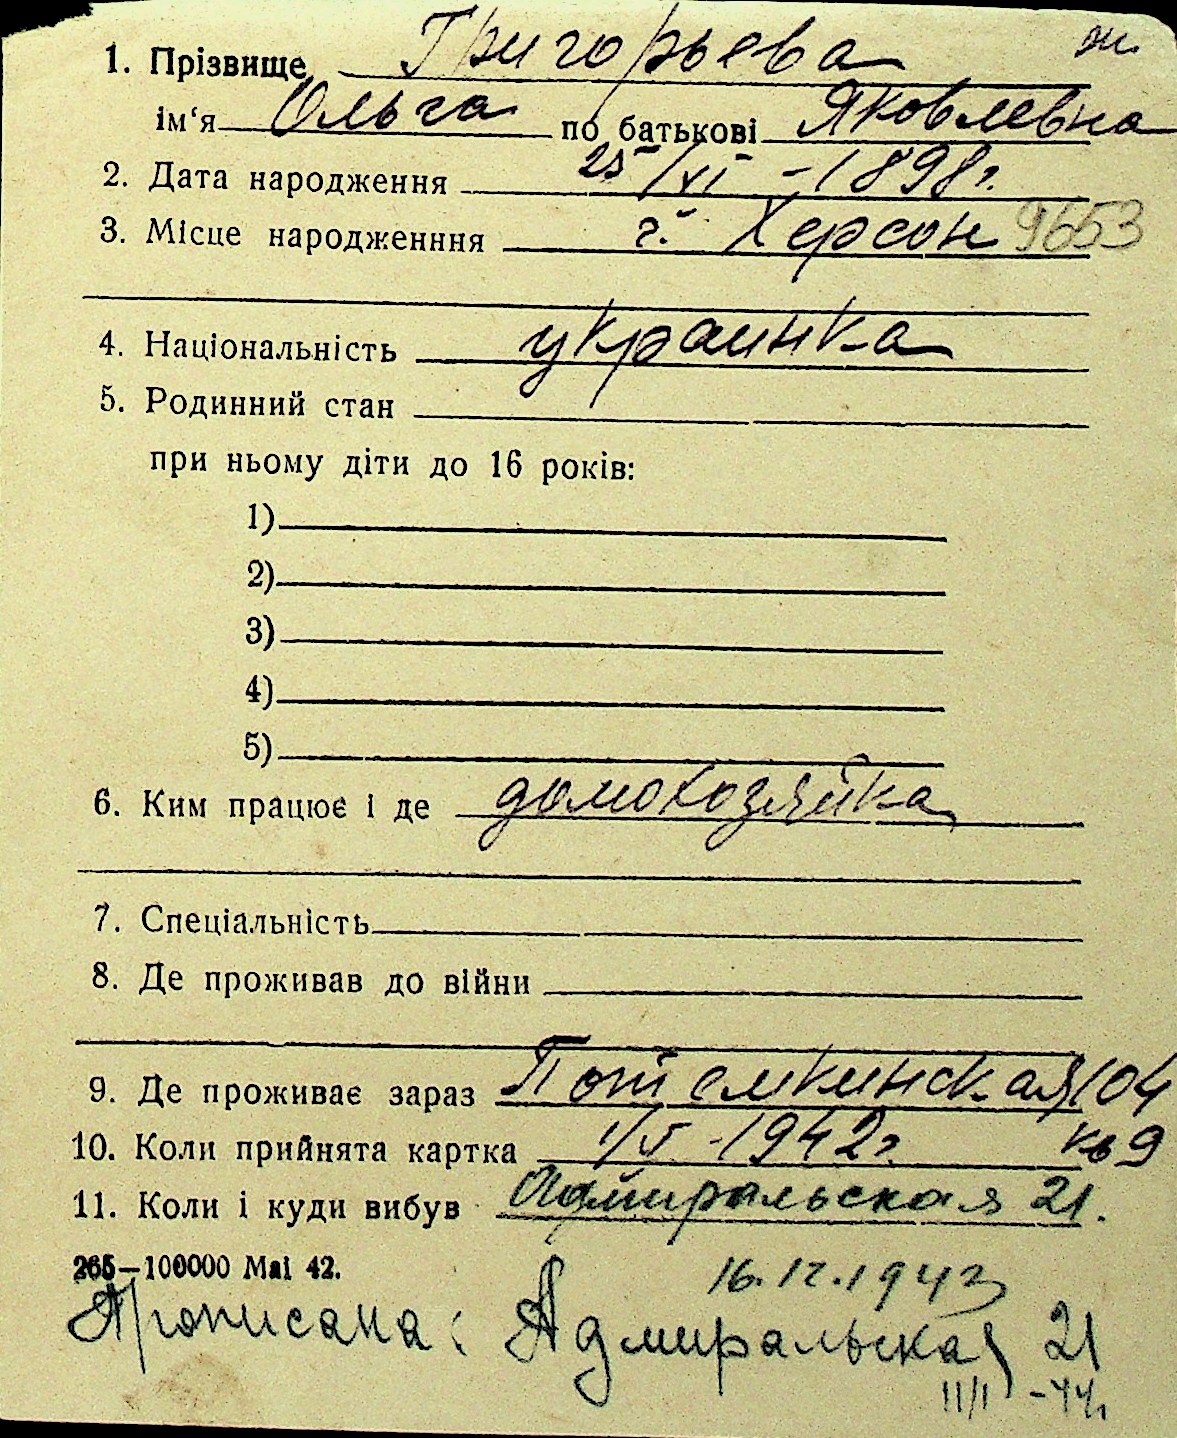 ж.
1. Прізвище Григорьева
ім‘я Ольга по батькові Яковлевна
2. Дата народження 25/VI – 1898 г.
3. Місце народженння г. Херсон 9653
4. Національність украинка
5. Родинний стан
при ньому діти до 16 років:
1)
2)
3)
4)
5)
6. Ким працює і де домохозяйка
7. Спеціальність
8. Де проживав до війни
9. Де проживає зараз Потемкинская 104
10. Коли прийнята картка 1/X - 1942 г. кв 9
11. Коли і куди вибув Адмиральская 21.
265—100000 Mai 42.
16.12.1943
Прописана: Адмиральская 21
11/I - 44 г.